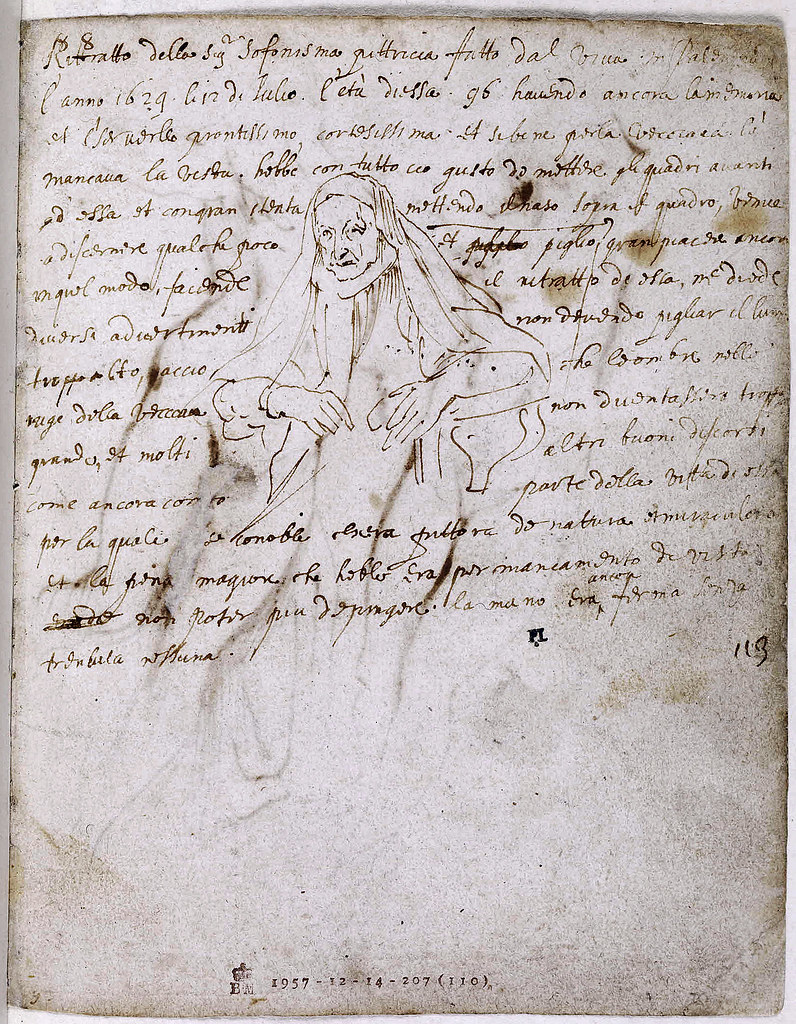 Rittratto della Sigra Sofonisma pittricia fatto dal vivo in Palermo
l'anno 1629 li 12 di Julio. l'età di essa . 96 havendo ancora la memoria
et il serverllo prontissimo, cortesissima et sebene per la vecciaia li
mancava la vista . hebbe con tutto cio gusto de mettere gli quadri avanti
ad essa et con gran stenta mettendo il naso sopra il quadro, venne
a discernere qualche poco et piglio gran piacere ancora
in quel modo, facendo il ritratto de essa, me diede
diversi advertimenti non devendo pigliar il lume
troppo alto, accio che le ombre nelle
ruge della vecciaia non diventassero troppo
grande, et molti altri buoni discorsi
come ancora conto parte della vita di essa
per la quale se conobbe chera pittora de natura et miraculosa
et la pena magiore che hebbe era per mancamento di vista
non poter piu depingere . la mano era ancora ferma senza
tremula nessuna .
PL
113
BM 1957-12-14-207(110)